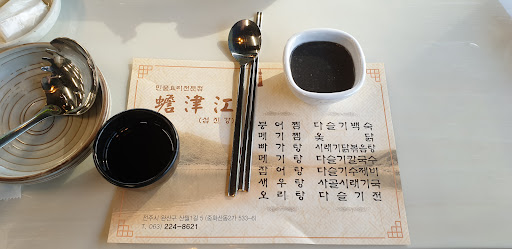 민물요리전문점
蟾津江
(섬진강)
붕어찜 다슬기백숙
메기찜 옻닭
빠가탕 시래기닭볶음탕
메기탕 다슬기칼국수
잡어탕 다슬기수제비
새우탕 사골시래기국
오리탕 다슬기전
전주시 완산구 산월1길 5 (중화산동2가 633-8)
T. 063) 224-8621